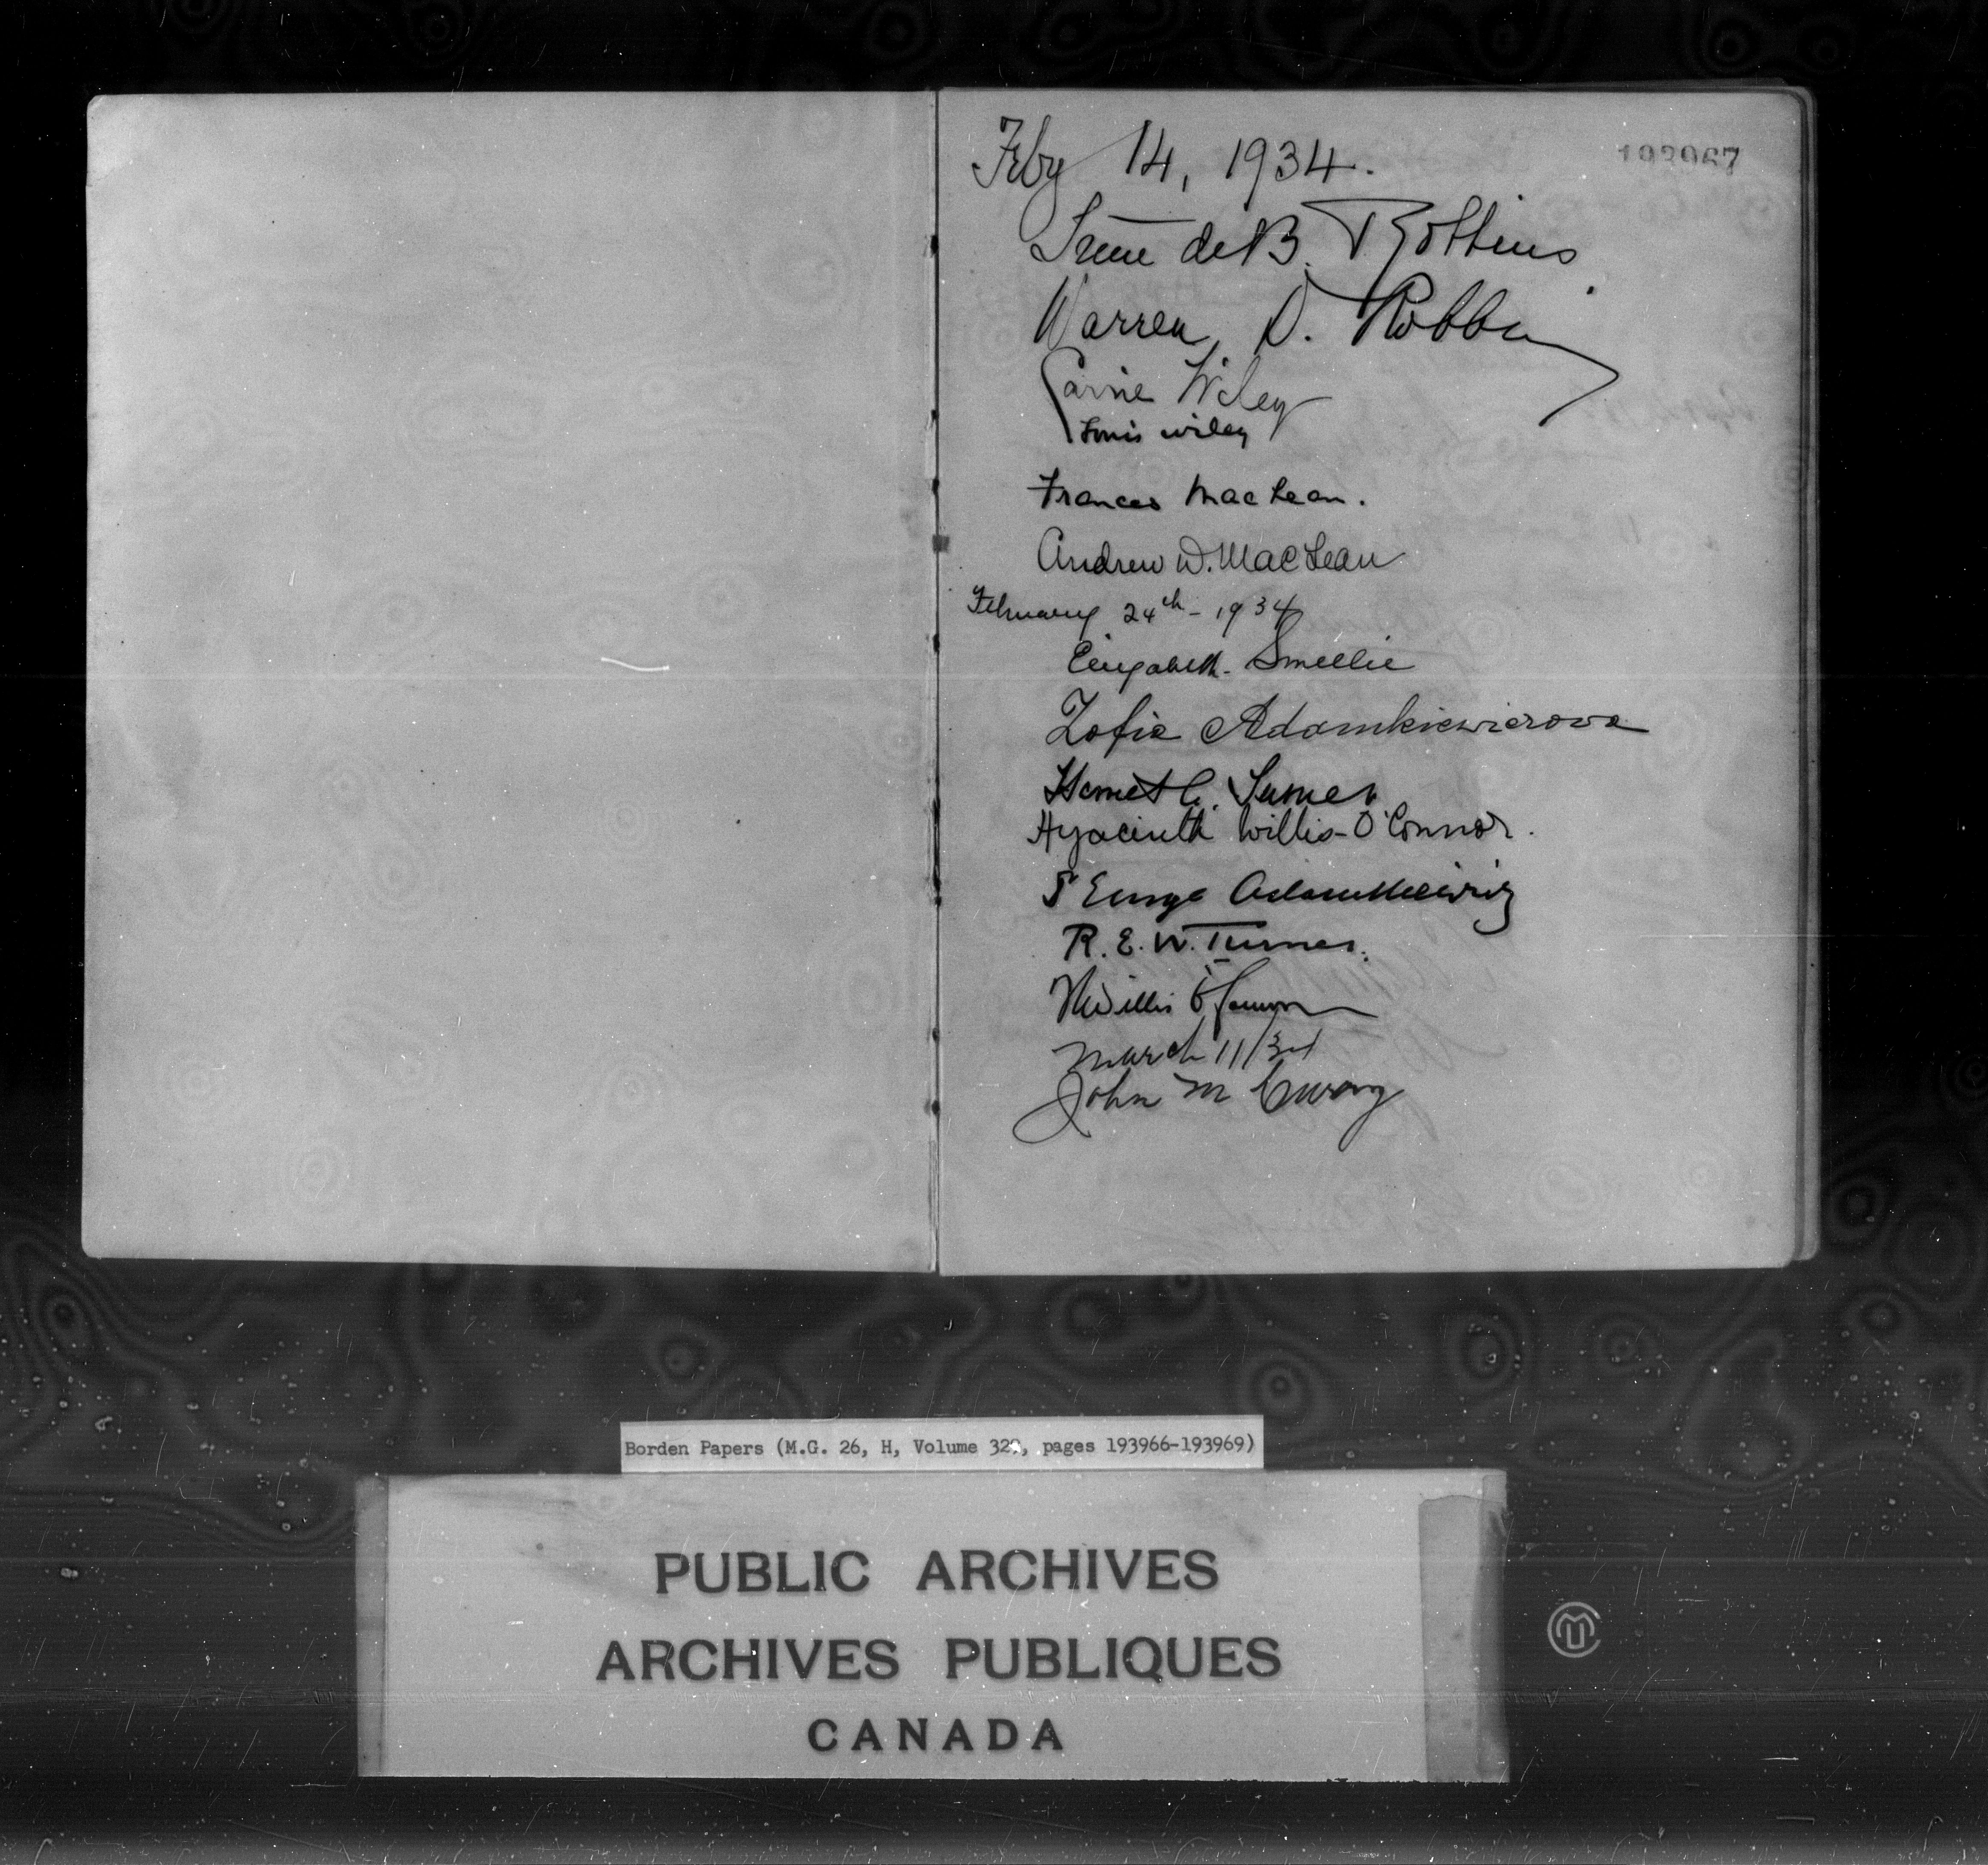 193967
Feby 14, 1934.
Irene de B. Robbins
Warren D. Robbins
Carrie Wiley
Louis Wiley
Frances MacLean.
Andrew W. MacLean
February 24th - 1934
Elizabeth Smellie
Zofia Adamkiewiczowa
Harriet C. Turner
Hyacinth Willis-O'Connor.
Adamkiewicz
R. E. W. Turner.
Willis O'Connor
March 11/34
John M
Borden Papers (M.G. 26, H, Volume 329, pages 193966-193969)
PUBLIC ARCHIVES
ARCHIVES PUBLIQUES
CANADA